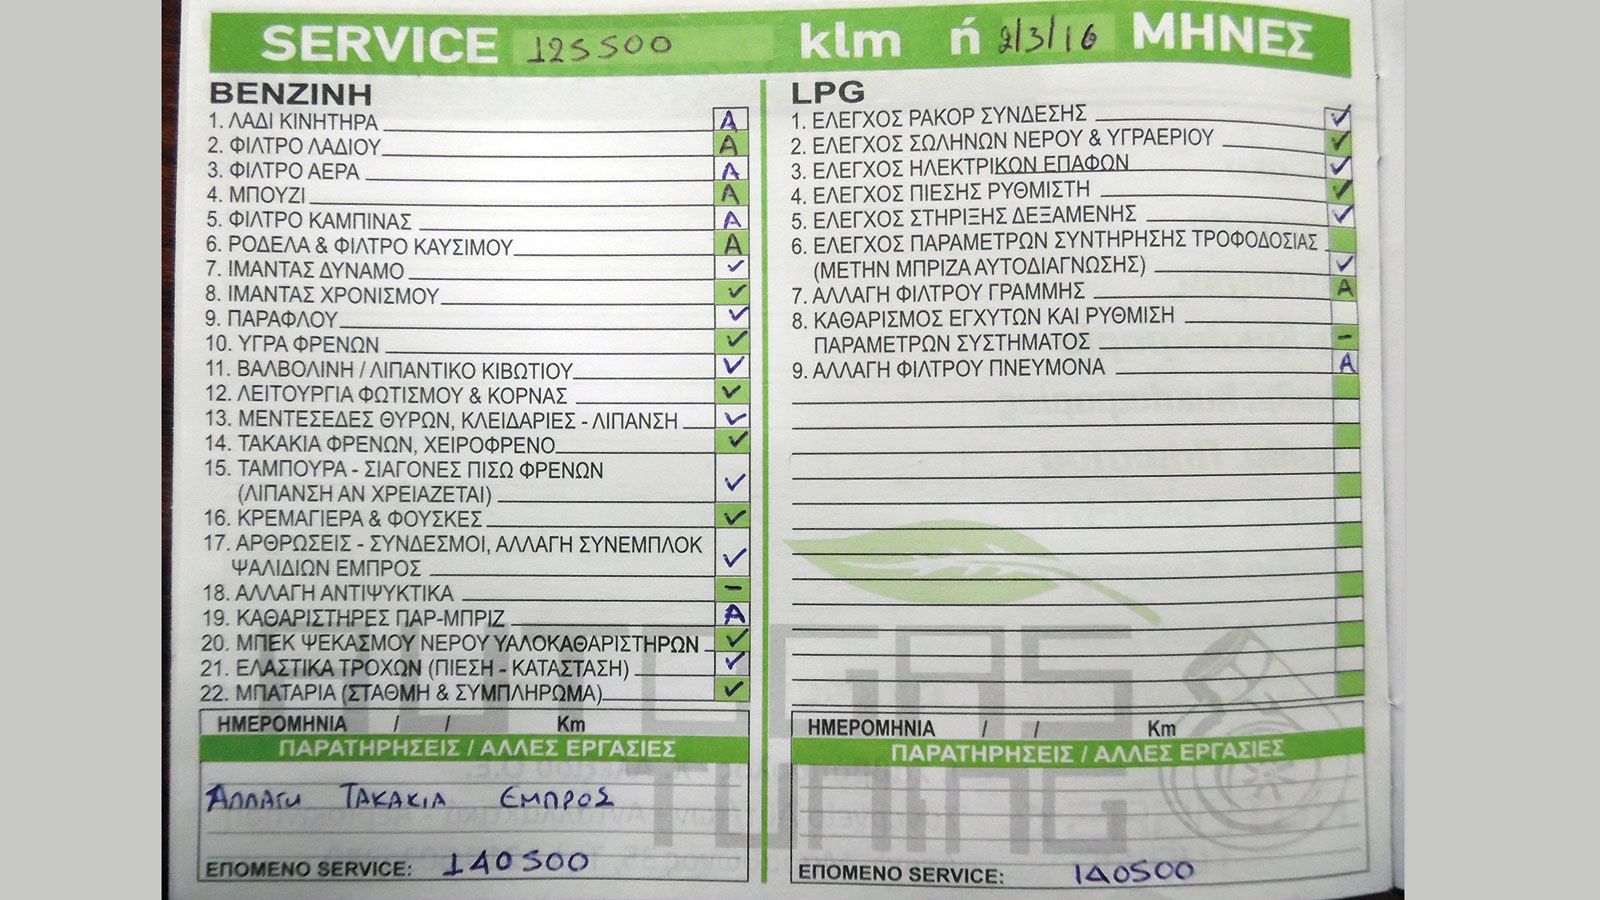 SERVICE 125500 klm ή 2/3/16 ΜΗΝΕΣ
ΒΕΝΖΙΝΗ
1. ΛΑΔΙ ΚΙΝΗΤΗΡΑ Α
2. ΦΙΛΤΡΟ ΛΑΔΙΟΥ Α
3. ΦΙΛΤΡΟ ΑΕΡΑ Α
4. ΜΠΟΥΖΙ Α
5. ΦΙΛΤΡΟ ΚΑΜΠΙΝΑΣ Α
6. ΡΟΔΕΛΑ & ΦΙΛΤΡΟ ΚΑΥΣΙΜΟΥ Α
7. ΙΜΑΝΤΑΣ ΔΥΝΑΜΟ ✓
8. ΙΜΑΝΤΑΣ ΧΡΟΝΙΣΜΟΥ ✓
9. ΠΑΡΑΦΛΟΥ ✓
10. ΥΓΡΑ ΦΡΕΝΩΝ ✓
11. ΒΑΛΒΟΛΙΝΗ / ΛΙΠΑΝΤΙΚΟ ΚΙΒΩΤΙΟΥ ✓
12. ΛΕΙΤΟΥΡΓΙΑ ΦΩΤΙΣΜΟΥ & ΚΟΡΝΑΣ ✓
13. ΜΕΝΤΕΣΕΔΕΣ ΘΥΡΩΝ, ΚΛΕΙΔΑΡΙΕΣ - ΛΙΠΑΝΣΗ ✓
14. ΤΑΚΑΚΙΑ ΦΡΕΝΩΝ, ΧΕΙΡΟΦΡΕΝΟ ✓
15. ΤΑΜΠΟΥΡΑ - ΣΙΑΓΟΝΕΣ ΠΙΣΩ ΦΡΕΝΩΝ
(ΛΙΠΑΝΣΗ ΑΝ ΧΡΕΙΑΖΕΤΑΙ) ✓
16. ΚΡΕΜΑΓΙΕΡΑ & ΦΟΥΣΚΕΣ ✓
17. ΑΡΘΡΩΣΕΙΣ - ΣΥΝΔΕΣΜΟΙ, ΑΛΛΑΓΗ ΣΥΝΕΜΠΛΟΚ
ΨΑΛΙΔΙΩΝ ΕΜΠΡΟΣ ✓
18. ΑΛΛΑΓΗ ΑΝΤΙΨΥΚΤΙΚΑ –
19. ΚΑΘΑΡΙΣΤΗΡΕΣ ΠΑΡ-ΜΠΡΙΖ Α
20. ΜΠΕΚ ΨΕΚΑΣΜΟΥ ΝΕΡΟΥ ΥΑΛΟΚΑΘΑΡΙΣΤΗΡΩΝ ✓
21. ΕΛΑΣΤΙΚΑ ΤΡΟΧΩΝ (ΠΙΕΣΗ - ΚΑΤΑΣΤΑΣΗ) ✓
22. ΜΠΑΤΑΡΙΑ (ΣΤΑΘΜΗ & ΣΥΜΠΛΗΡΩΜΑ) ✓
ΗΜΕΡΟΜΗΝΙΑ / / Km
ΠΑΡΑΤΗΡΗΣΕΙΣ / ΑΛΛΕΣ ΕΡΓΑΣΙΕΣ
ΑΛΛΑΓΗ ΤΑΚΑΚΙΑ ΕΜΠΡΟΣ
ΕΠΟΜΕΝΟ SERVICE: 140500
LPG
1. ΕΛΕΓΧΟΣ ΡΑΚΟΡ ΣΥΝΔΕΣΗΣ ✓
2. ΕΛΕΓΧΟΣ ΣΩΛΗΝΩΝ ΝΕΡΟΥ & ΥΓΡΑΕΡΙΟΥ ✓
3. ΕΛΕΓΧΟΣ ΗΛΕΚΤΡΙΚΩΝ ΕΠΑΦΩΝ ✓
4. ΕΛΕΓΧΟΣ ΠΙΕΣΗΣ ΡΥΘΜΙΣΤΗ ✓
5. ΕΛΕΓΧΟΣ ΣΤΗΡΙΞΗΣ ΔΕΞΑΜΕΝΗΣ ✓
6. ΕΛΕΓΧΟΣ ΠΑΡΑΜΕΤΡΩΝ ΣΥΝΤΗΡΗΣΗΣ ΤΡΟΦΟΔΟΣΙΑΣ
(ΜΕΤΗΝ ΜΠΡΙΖΑ ΑΥΤΟΔΙΑΓΝΩΣΗΣ) ✓
7. ΑΛΛΑΓΗ ΦΙΛΤΡΟΥ ΓΡΑΜΜΗΣ Α
8. ΚΑΘΑΡΙΣΜΟΣ ΕΓΧΥΤΩΝ ΚΑΙ ΡΥΘΜΙΣΗ
ΠΑΡΑΜΕΤΡΩΝ ΣΥΣΤΗΜΑΤΟΣ –
9. ΑΛΛΑΓΗ ΦΙΛΤΡΟΥ ΠΝΕΥΜΟΝΑ Α
ΗΜΕΡΟΜΗΝΙΑ / / Km
ΠΑΡΑΤΗΡΗΣΕΙΣ / ΑΛΛΕΣ ΕΡΓΑΣΙΕΣ
ΕΠΟΜΕΝΟ SERVICE: 140500
AUTOGAS
TUNING